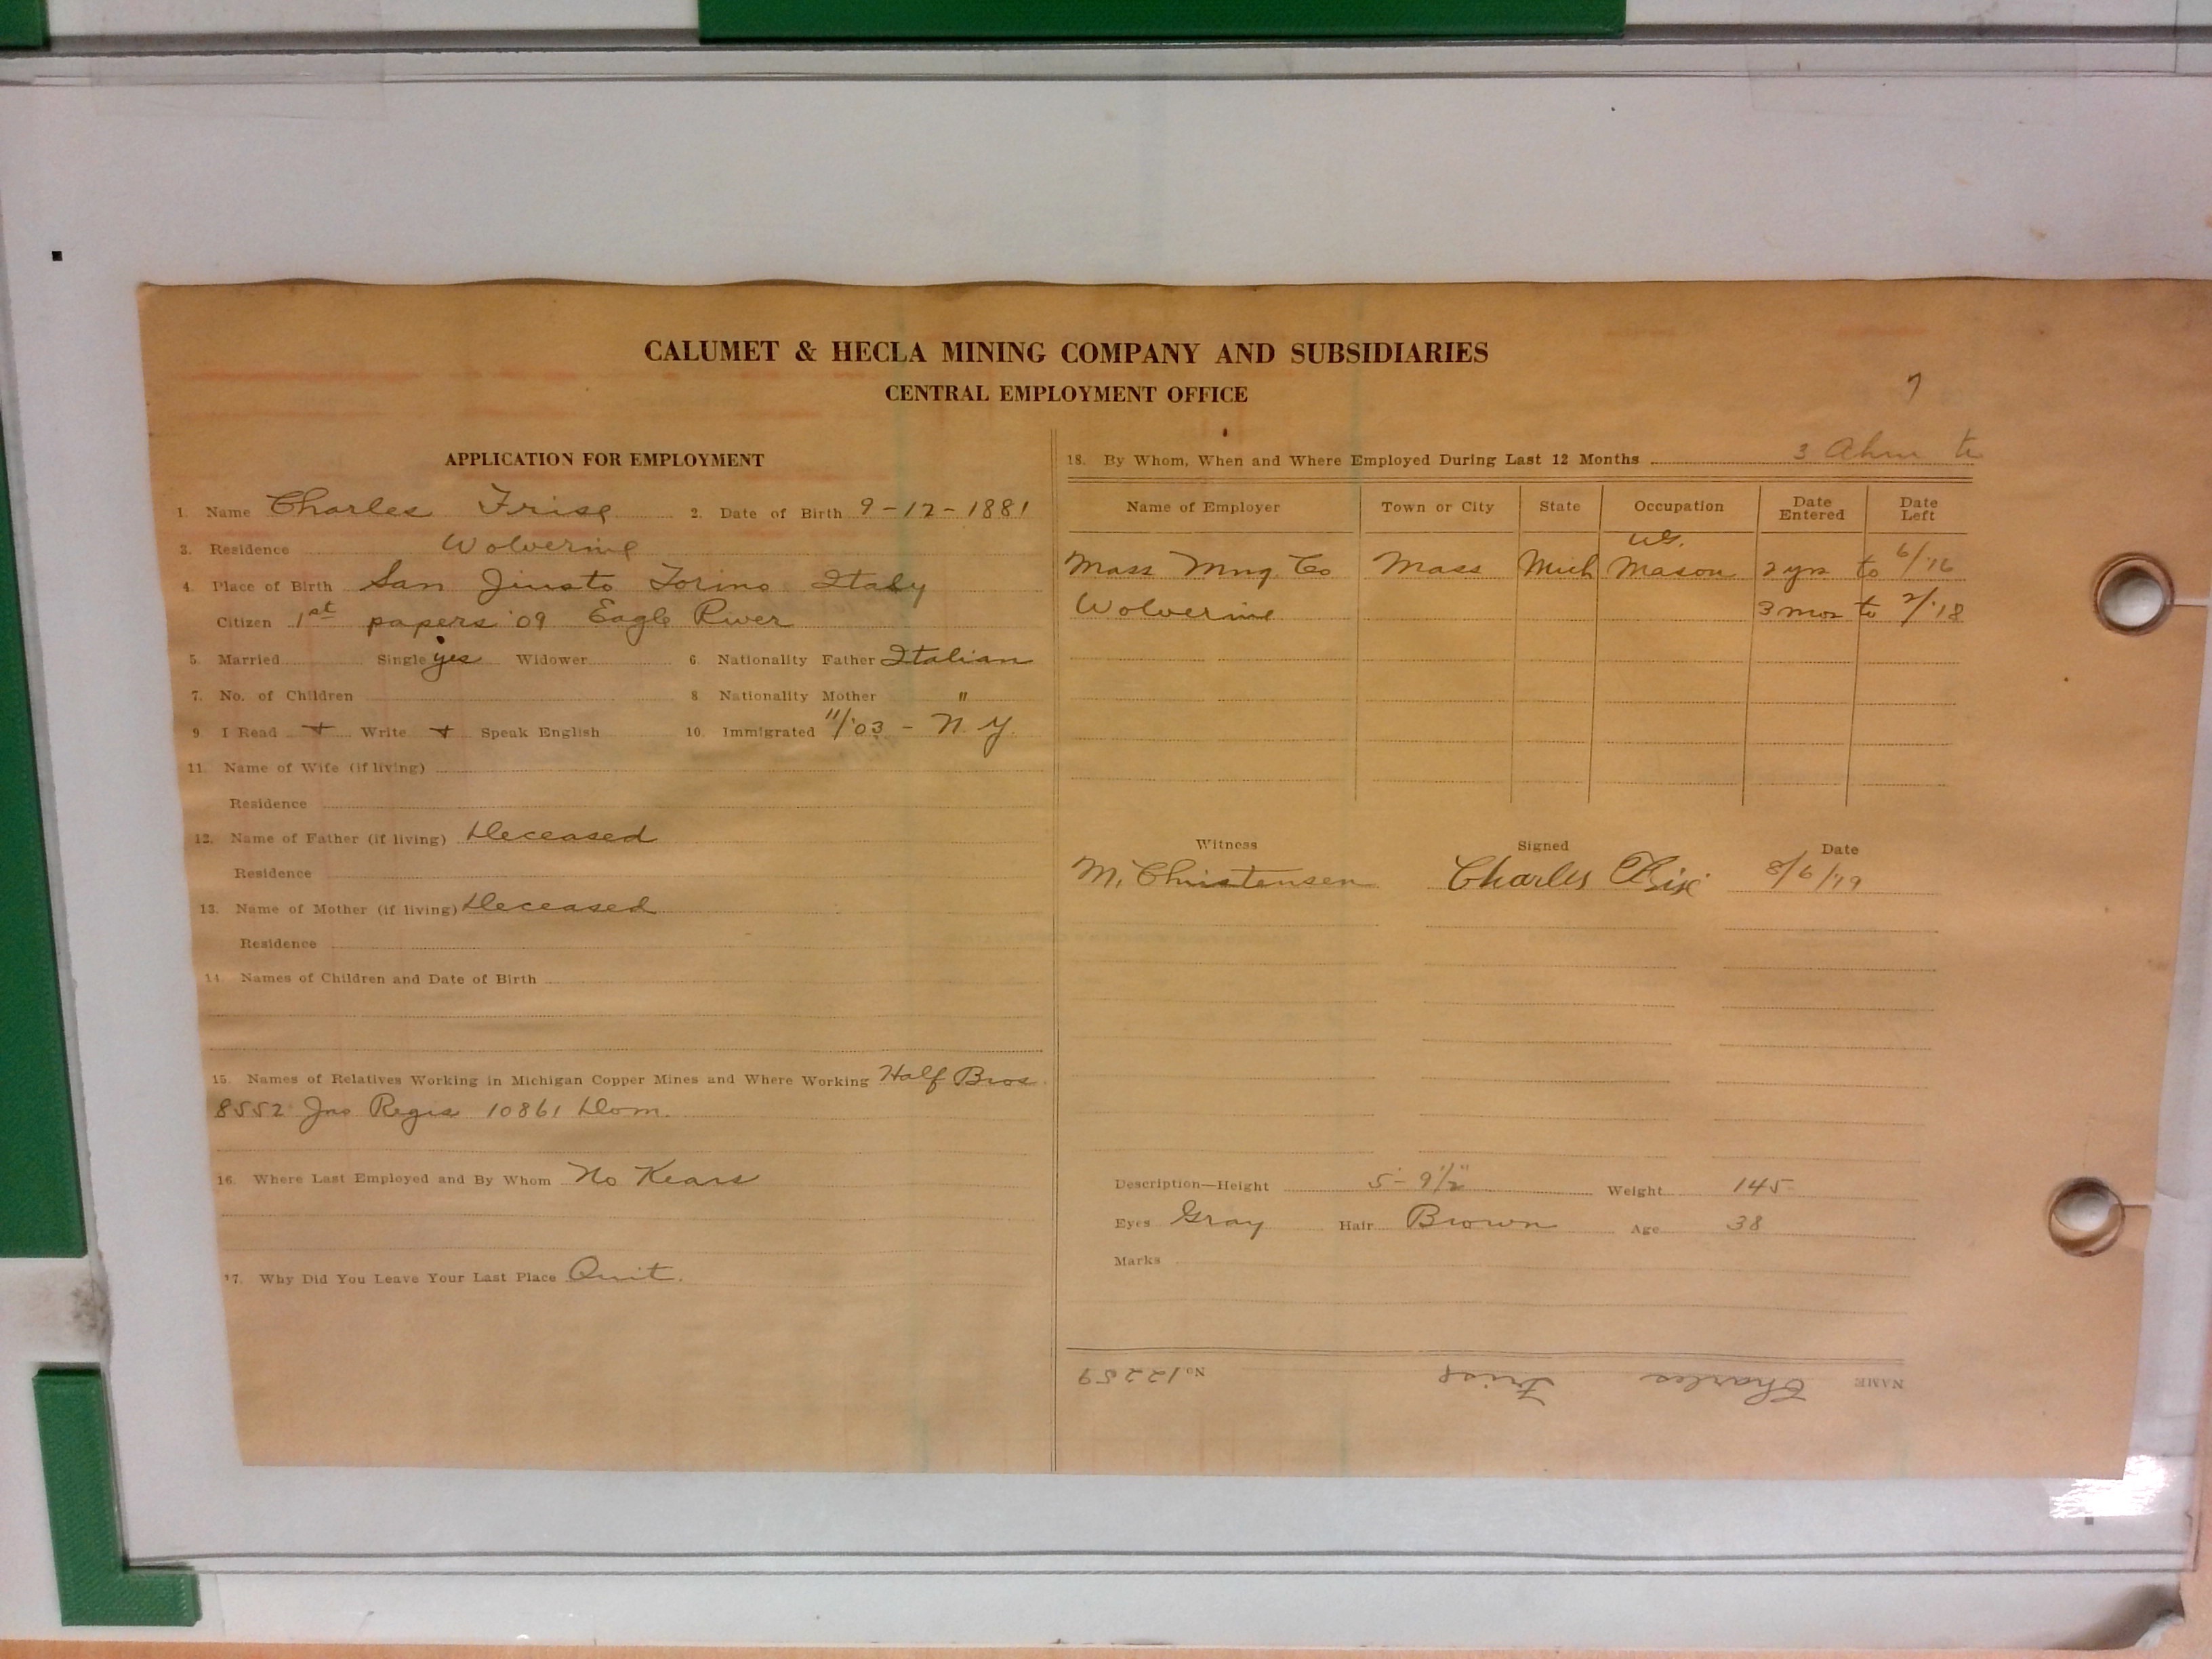 CALUMET & HECLA MINING COMPANY AND SUBSIDIARIES
CENTRAL EMPLOYMENT OFFICE
7
APPLICATION FOR EMPLOYMENT
1. Name Charles Frise 2. Date of Birth 9-12-1881
3. Residence Wolverine
4. Place of Birth San Jiusto Torino Italy
Citizen 1st papers '09 Eagle River
5. Married Single yes Widower 6. Nationality Father Italian
7. No. of Children 8. Nationality Mother "
9. I Read + Write + Speak English 10. Immigrated 11/'03 - N.Y.
11. Name of Wife (if living)
Residence
12. Name of Father (if living) Deceased
Residence
13. Name of Mother (if living) Deceased
Residence
14. Names of Children and Date of Birth
15. Names of Relatives Working in Michigan Copper Mines and Where Working Half Bros
8552 Jno Regis 10861 Dom.
16. Where Last Employed and By Whom No Kears
17. Why Did You Leave Your Last Place Quit.
18. By Whom, When and Where Employed During Last 12 Months 3 Ahm
Name of Employer Town or City State Occupation Date Entered Date Left
Mass Mng Co Mass Mich Mason 2 yrs to 6/'16
Wolverine 3 mos to 2/'18
Witness Signed Date
M. Christensen Charles 8/6/'19
Description—Height 5-9½" Weight 145
Eyes Gray Hair Brown Age 38
Marks
NAME Charles Frise No. 12259